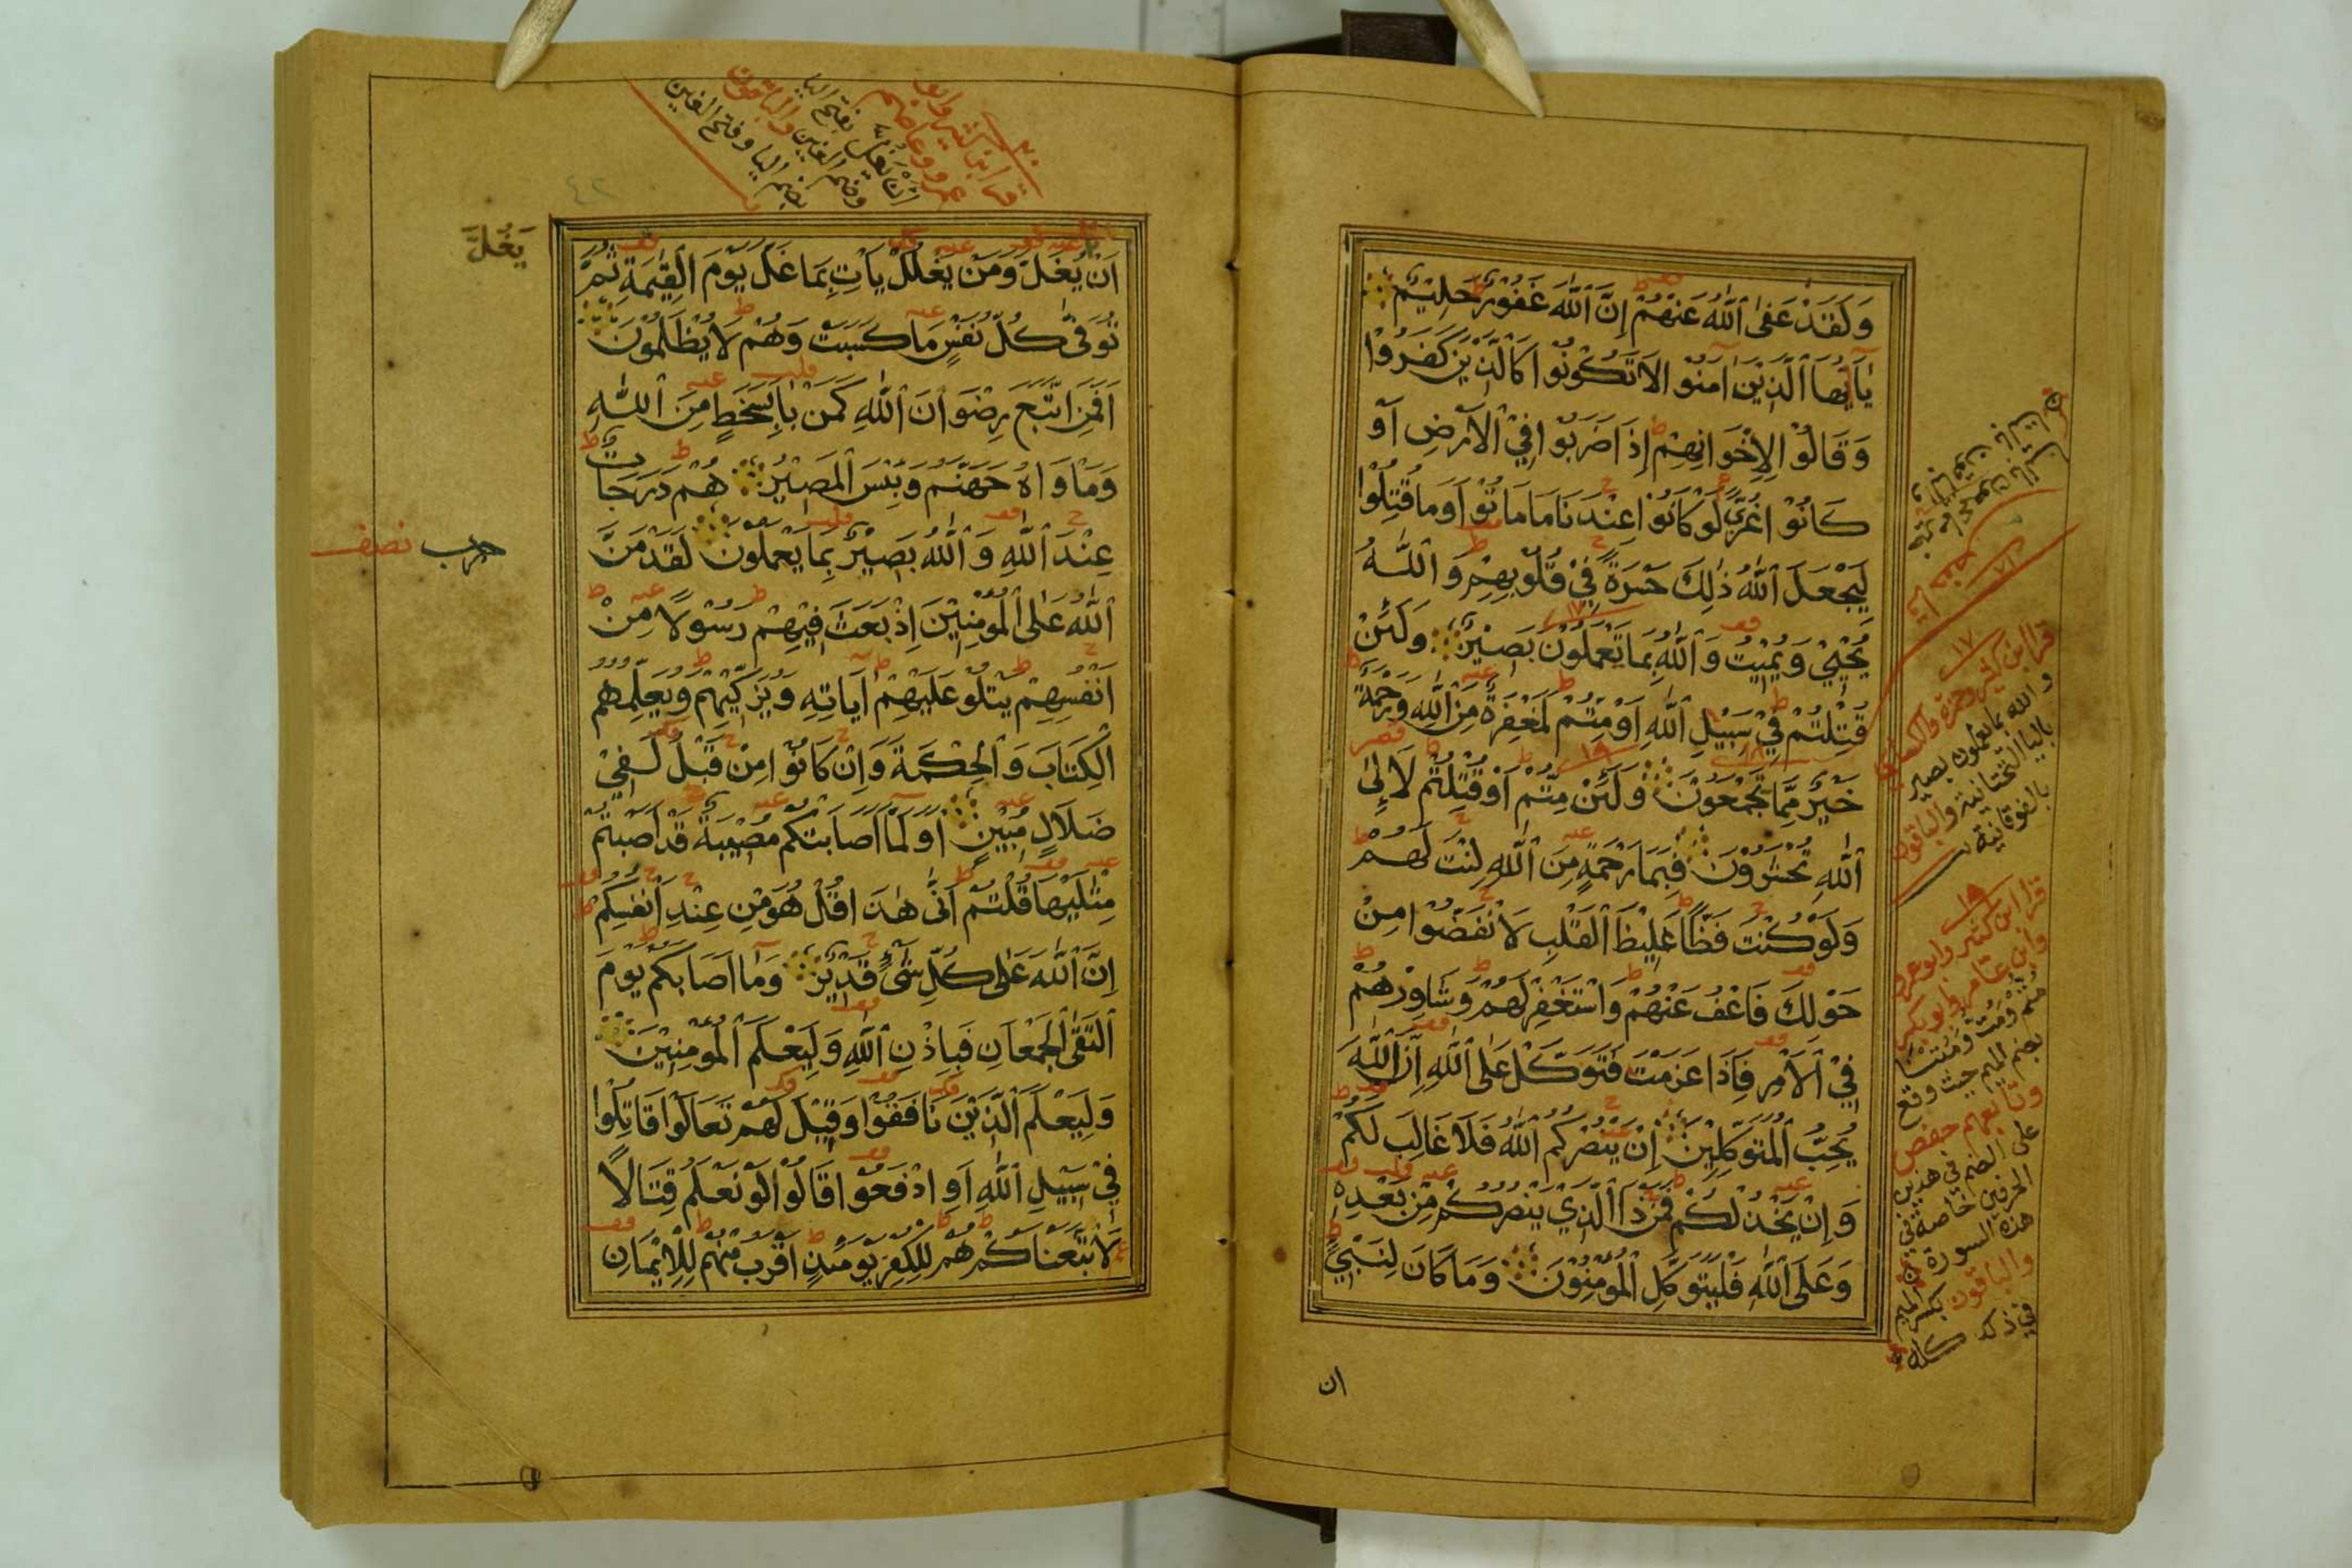 وَلَقَدْ عَفَى ٱللَّهُ عَنْهُمْ إِنَّ ٱللَّهَ غَفُوْرٌ حَلِيْمٌ
يَآأَيُّهَا ٱلَّذِيْنَ اٰمَنُوْا لَا تَكُوْنُوْا كَالَّذِيْنَ كَفَرُوْا
وَقَالُوْا لِإِخْوَانِهِمْ إِذَا ضَرَبُوْا فِيْ ٱلْأَرْضِ أَوْ
كَانُوْا غُزًّى لَوْ كَانُوْا عِنْدَنَا مَا مَاتُوْا وَمَا قُتِلُوْا
لِيَجْعَلَ ٱللَّهُ ذٰلِكَ حَسْرَةً فِيْ قُلُوْبِهِمْ وَٱللَّهُ
يُحْيِيْ وَيُمِيْتُ وَٱللَّهُ بِمَا تَعْمَلُوْنَ بَصِيْرٌ وَلَئِنْ
قُتِلْتُمْ فِيْ سَبِيْلِ ٱللَّهِ أَوْ مِتُّمْ لَمَغْفِرَةٌ مِنَ ٱللَّهِ وَرَحْمَةٌ
خَيْرٌ مِمَّا تَجْمَعُوْنَ وَلَئِنْ مِتُّمْ أَوْ قُتِلْتُمْ لَا إِلَى
ٱللَّهِ تُحْشَرُوْنَ فَبِمَا رَحْمَةٍ مِنَ ٱللَّهِ لِنْتَ لَهُمْ
وَلَوْ كُنْتَ فَظًّا غَلِيْظَ ٱلْقَلْبِ لَانْفَضُّوْا مِنْ
حَوْلِكَ فَاعْفُ عَنْهُمْ وَاسْتَغْفِرْ لَهُمْ وَشَاوِرْهُمْ
فِيْ ٱلْأَمْرِ فَإِذَا عَزَمْتَ فَتَوَكَّلْ عَلَى ٱللَّهِ إِنَّ ٱللَّهَ
يُحِبُّ ٱلْمُتَوَكِّلِيْنَ إِنْ يَنْصُرْكُمُ ٱللَّهُ فَلَا غَالِبَ لَكُمْ
وَإِنْ يَخْذُلْكُمْ فَمَنْ ذَا ٱلَّذِيْ يَنْصُرُكُمْ مِنْ بَعْدِهِ
وَعَلَى ٱللَّهِ فَلْيَتَوَكَّلِ ٱلْمُؤْمِنُوْنَ وَمَا كَانَ لِنَبِيٍّ
ان
قرا ابن كثير وحمزة والكسائي
والله بما يعملون بصير
باليا التحتانية والباقون
بالفوقانية
قرا ابن كثير وابو عمرو
وابن عامر وابو بكر
مُتم ومُت ومُتنا
بضم الميم حيث وقع
وتابعهم حفص
على الضم في هذين
الحرفين خاصة في
هذه السورة
والباقون بكسر الميم
في ذلك كله
أَنْ يَغُلَّ وَمَنْ يَغْلُلْ يَأْتِ بِمَا غَلَّ يَوْمَ ٱلْقِيٰمَةِ ثُمَّ
تُوَفَّى كُلُّ نَفْسٍ مَا كَسَبَتْ وَهُمْ لَا يُظْلَمُوْنَ
أَفَمَنِ اتَّبَعَ رِضْوَانَ ٱللَّهِ كَمَنْ بَاءَ بِسَخَطٍ مِنَ ٱللَّهِ
وَمَأْوَاهُ جَهَنَّمُ وَبِئْسَ ٱلْمَصِيْرُ هُمْ دَرَجَاتٌ
عِنْدَ ٱللَّهِ وَٱللَّهُ بَصِيْرٌ بِمَا يَعْمَلُوْنَ لَقَدْ مَنَّ
ٱللَّهُ عَلَى ٱلْمُؤْمِنِيْنَ إِذْ بَعَثَ فِيْهِمْ رَسُوْلًا مِنْ
أَنْفُسِهِمْ يَتْلُوْ عَلَيْهِمْ آيَاتِهِ وَيُزَكِّيْهِمْ وَيُعَلِّمُهُمُ
ٱلْكِتَابَ وَٱلْحِكْمَةَ وَإِنْ كَانُوْا مِنْ قَبْلُ لَفِيْ
ضَلَالٍ مُبِيْنٍ أَوَلَمَّا أَصَابَتْكُمْ مُصِيْبَةٌ قَدْ أَصَبْتُمْ
مِثْلَيْهَا قُلْتُمْ أَنَّى هٰذَا قُلْ هُوَ مِنْ عِنْدِ أَنْفُسِكُمْ
إِنَّ ٱللَّهَ عَلَى كُلِّ شَيْءٍ قَدِيْرٌ وَمَا أَصَابَكُمْ يَوْمَ
ٱلْتَقَى ٱلْجَمْعَانِ فَبِإِذْنِ ٱللَّهِ وَلِيَعْلَمَ ٱلْمُؤْمِنِيْنَ
وَلِيَعْلَمَ ٱلَّذِيْنَ نَافَقُوْا وَقِيْلَ لَهُمْ تَعَالَوْا قَاتِلُوْا
فِيْ سَبِيْلِ ٱللَّهِ أَوِ ادْفَعُوْا قَالُوْا لَوْ نَعْلَمُ قِتَالًا
لَاتَّبَعْنَاكُمْ هُمْ لِلْكُفْرِ يَوْمَئِذٍ أَقْرَبُ مِنْهُمْ لِلْإِيْمَانِ
يَغُلَّ
حزب نصف
٤٢
ان يغل بفتح اليا
وضم الغين والباقون
بضم اليا وفتح الغين